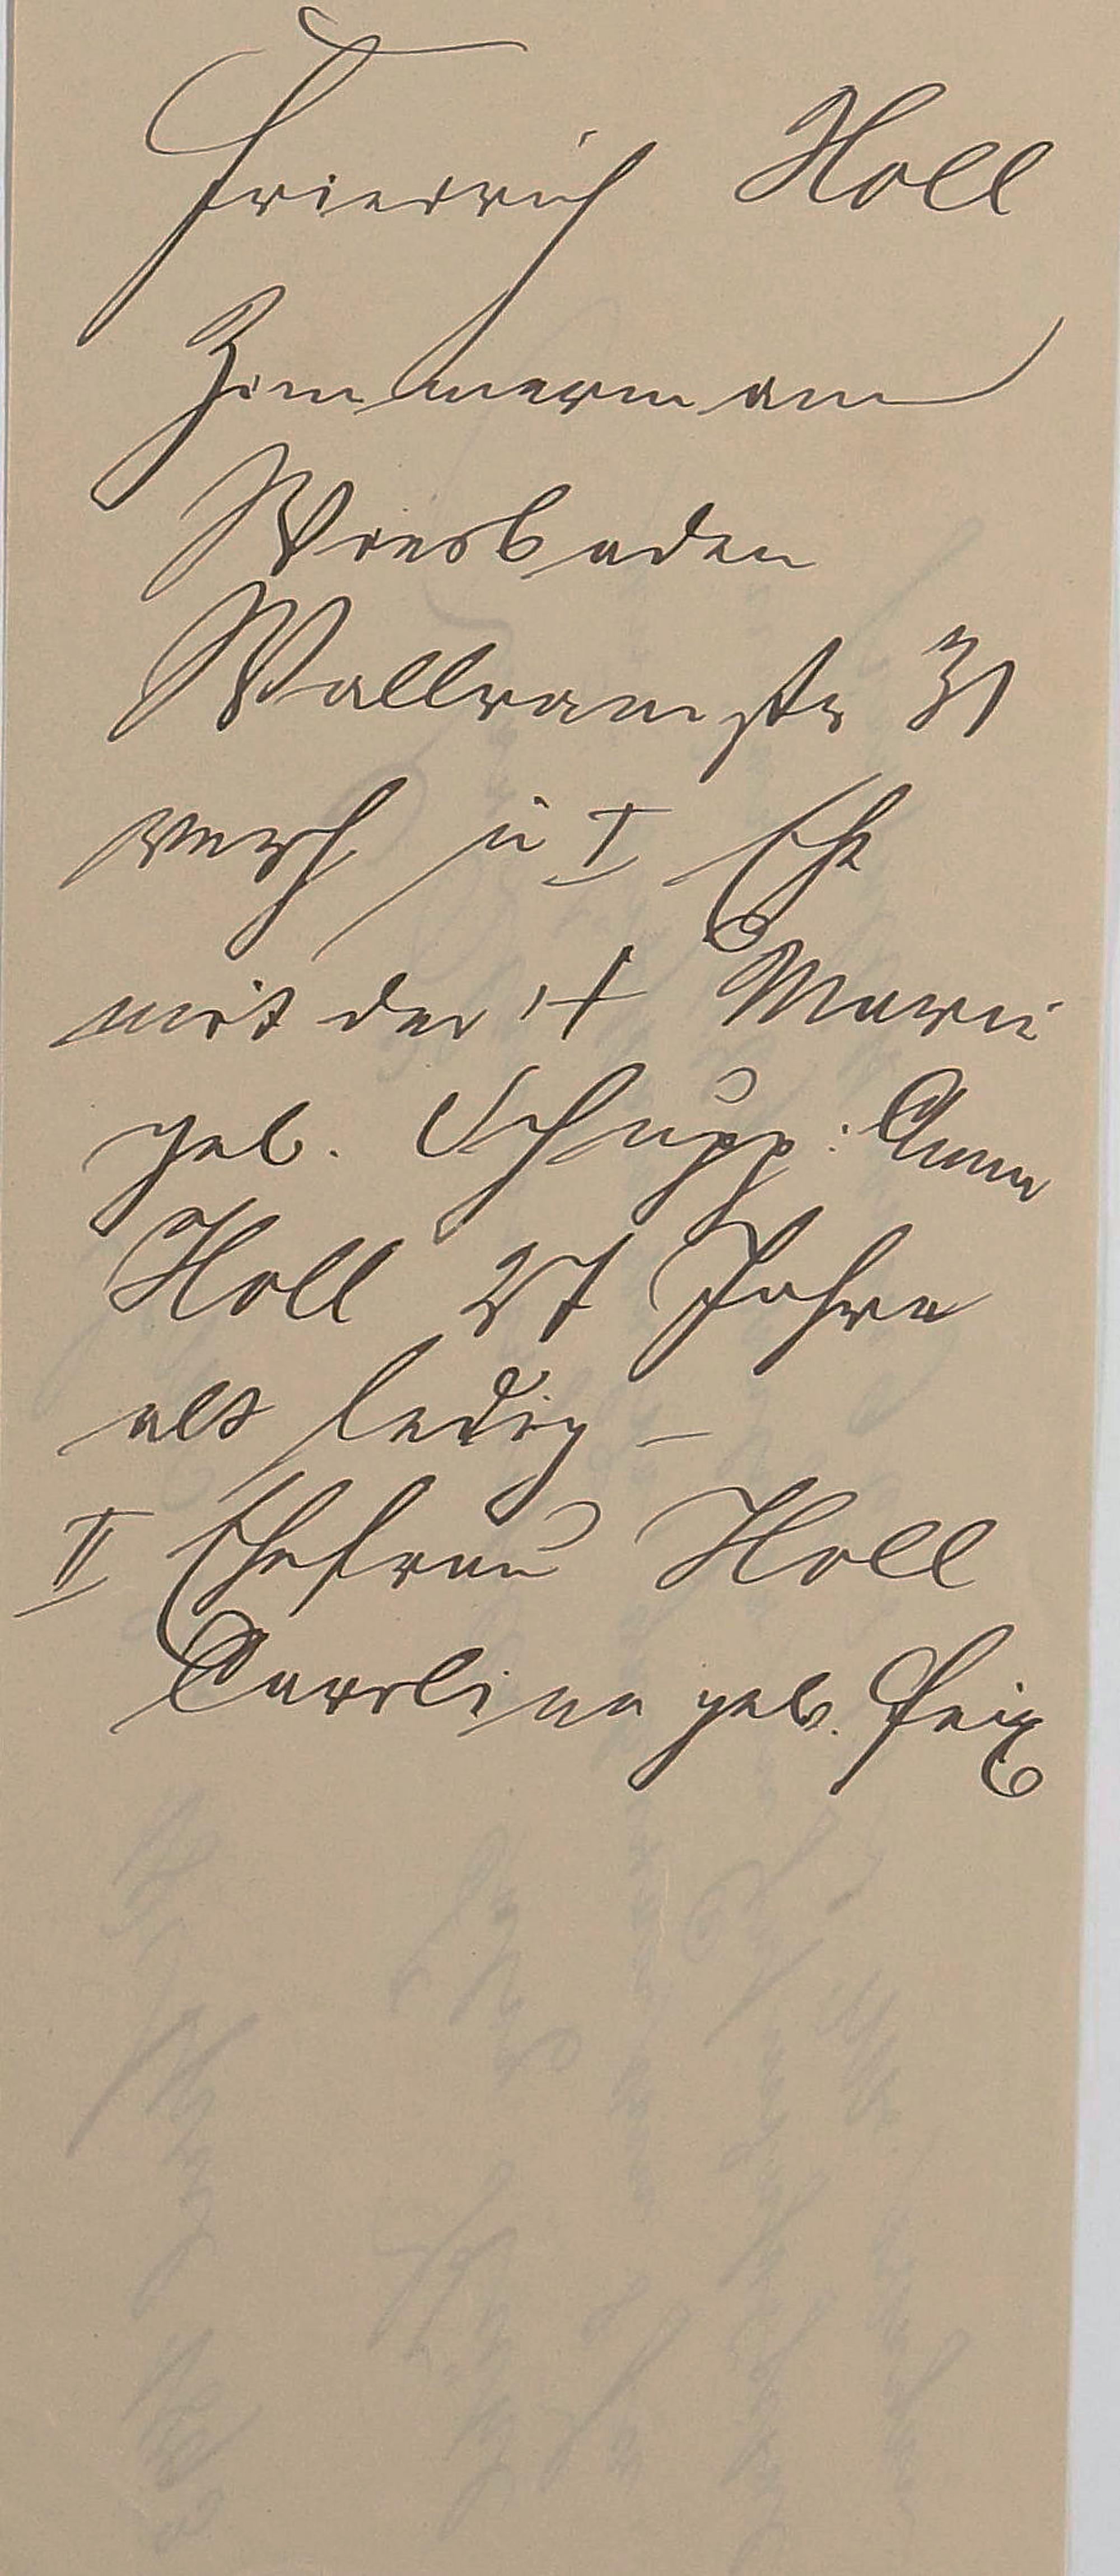 Friedrich Holl
Zimmermann
Wiesbaden
Wallramstr 31
verh in I Ehe
mit der † Marie
geb. Schupp: Anna
Holl 27 Jahre
alt ledig –
II Ehefrau Holl
Caroline geb. Feix